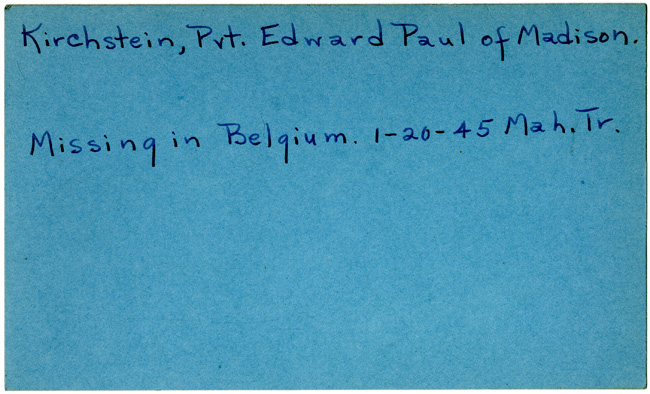 Kirchstein, Pvt. Edward Paul of Madison.
Missing in Belgium. 1-20-45 Mah. Tr.